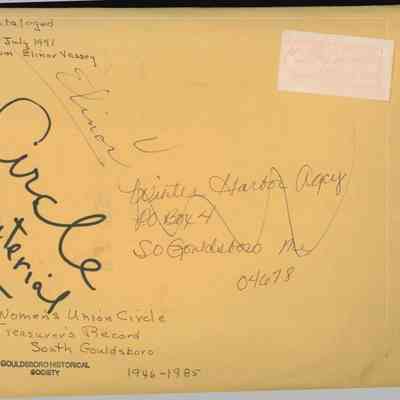 Catalogued
July 1991
from Elinor Vassey
Elinor
Circle
Material
Winter Harbor Agcy
PO Box 4
So Gouldsboro Me
04678
Women's Union Circle
Treasurer's Record
South Gouldsboro
GOULDSBORO HISTORICAL
SOCIETY
1946-1985